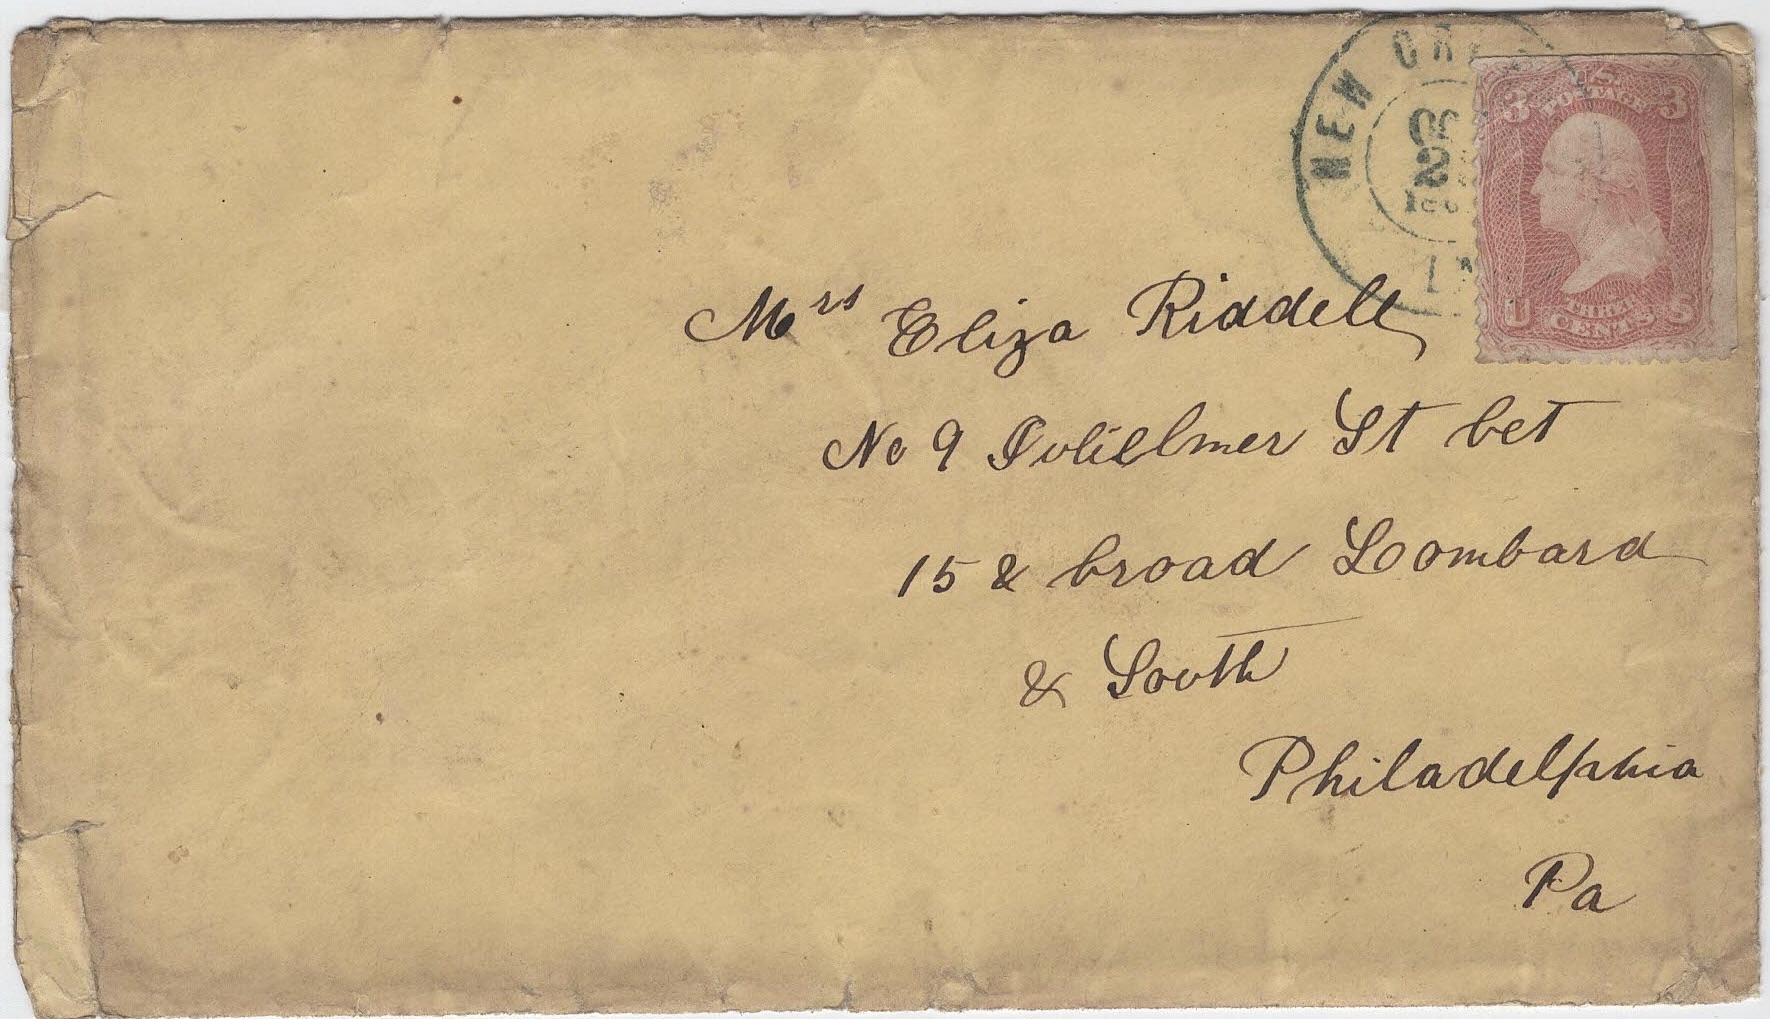 NEW
OC
2
U.S.
POSTAGE
3 3
THREE
CENTS
U S
Mrs Eliza Riddell
No 9 St bet
15 & broad Lombard
& South
Philadelphia
Pa